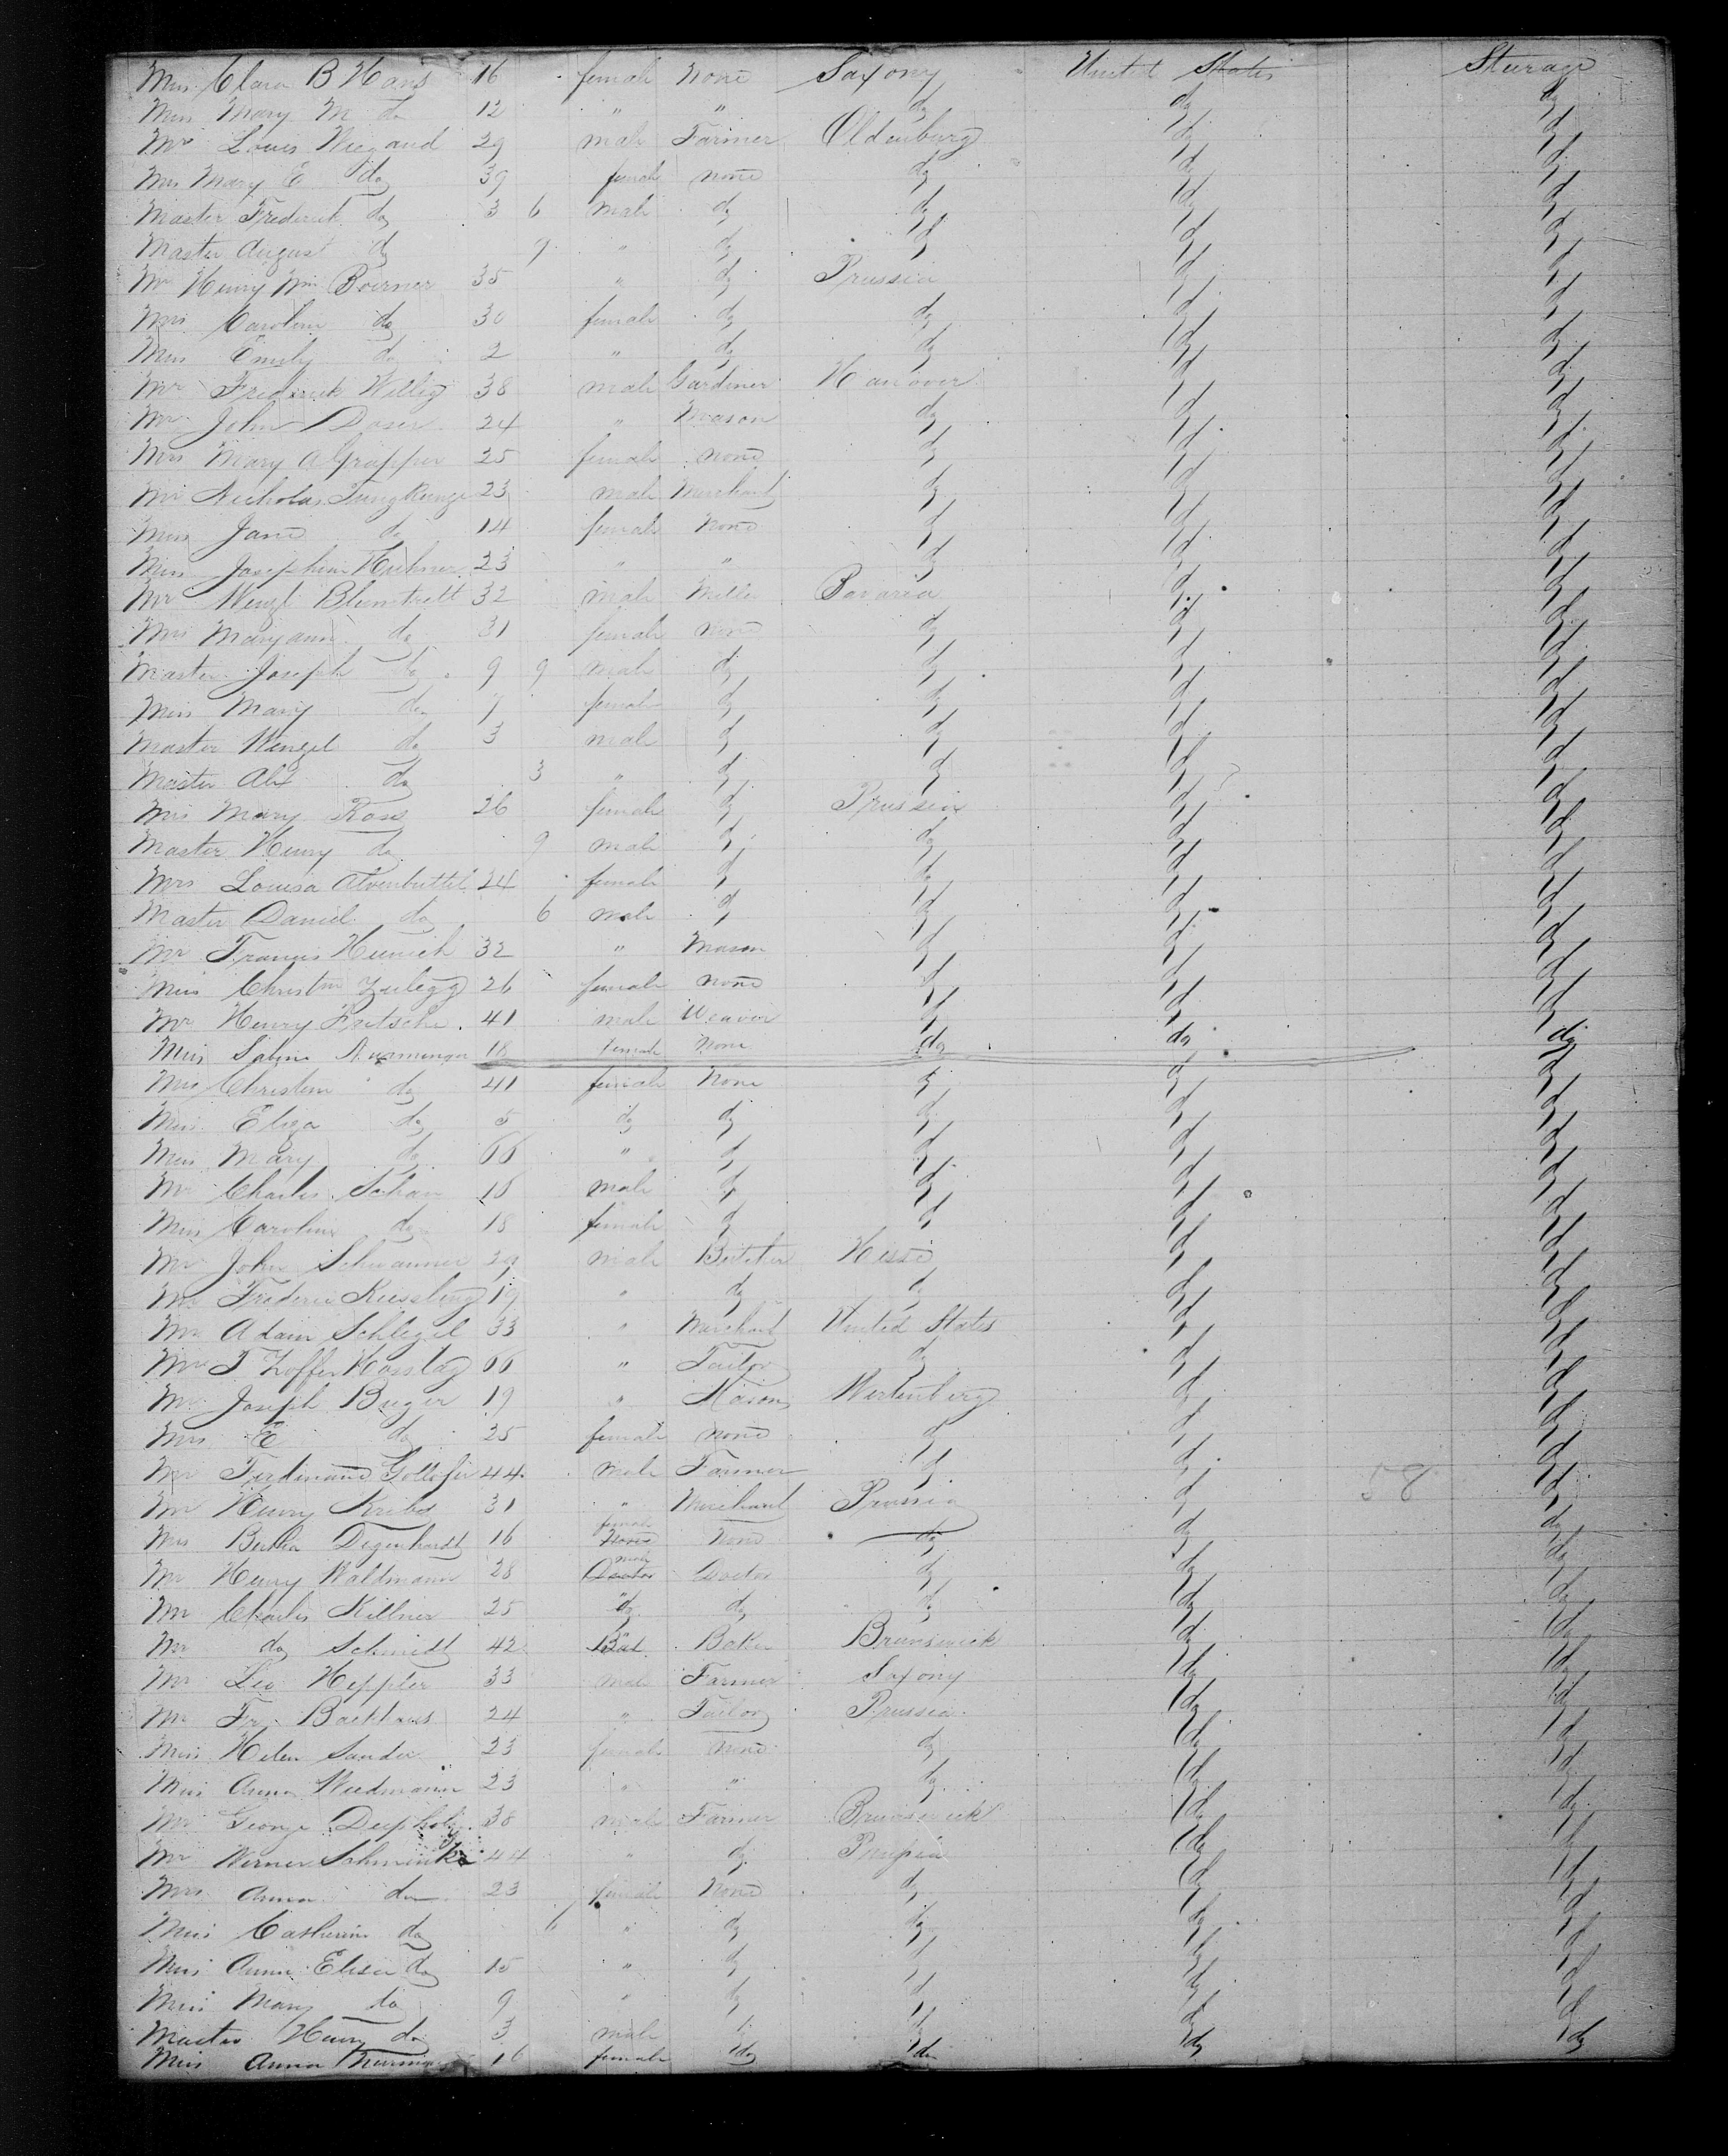 Miss Clara B Hans 16 female None Saxony United States Sturage
Miss Mary M do 12 " " do do do
Mr Louis Wiegand 29 male Farmer Oldenburg do do
Mrs Mary E do 39 female none do do do
Master Frederick do 3 6 male do do do do
Master August do 9 " do do do do
Mr Henry Wm Boerner 35 " do Prussia do do
Mrs Caroline do 30 female do do do do
Miss Emily do 2 " do do do do
Mr Frederick Willig 38 male Gardiner Hanover do do
Mr John Doser 24 " Mason do do do
Mrs Mary A Grupper 25 female none do do do
Mr Nicholas 23 male Merchant do do do
Miss Jane do 14 female None do do do
Miss Josephine Huhner 23 " " do do do
Mr Wenzl Blumtritt 32 male Miller Bavaria do do
Mrs Maryann do 31 female none do do do
Master Joseph do 9 9 male do do do do
Miss Mary do 7 female do do do do
Master Wenzel do 3 male do do do do
Master Alx do 3 " do do do do
Mrs Mary Rose 26 female do Prussia do do
Master Henry do 9 male do do do do
Mrs Louisa Alvenbuttel 24 female do do do do
Master Daniel do 6 male do do do do
Mr Francis Heinich 32 " Mason do do do
Miss Christine Zulegg 26 female none do do do
Mr Henry Fritsche 41 male Weaver do do do
Miss Sabine 18 female None do do do
Mrs Christine do 41 female None do do do
Miss Eliza do 5 do do do do do
Miss Mary do 66 " do do do do
Mr Charles Schaw 18 male do do do do
Miss Caroline do 18 female do do do do
Mr John Schwanner 29 male Butcher Hesse do do
Mr Frederic Kiessling 19 " do do do do
Mr Adam Schlegel 33 " Merchant United States do do
Mr T 66 " Tailor do do do
Mr Joseph Buger 19 " Mason Wertenberg do do
Mrs E do 25 female none do do do
Mr Ferdinand Gollofer 44 male Farmer do do do
Mr Henry Kribs 31 " Merchant Prussia do 58 do
Miss Bertha Degenhardt 16 None female None do do do
Mr Henry Waldmann 28 Doctor male Doctor do do do
Mr Charles Killner 25 do do do do do
Mr do Schmidt 42 Bak " Baker Brunswick do do
Mr Leo Heppler 33 male Farmer Saxony do do
Mr Fr. Backhaus 24 " Tailor Prussia do do
Miss Helen Sander 23 female none do do do
Miss Anna Wiedmann 23 " " do do do
Mr George Diepholz 38 male Farmer Brunswick do do
Mr Werner Schminke 44 " do Prussia do do
Mrs Anna do 23 female None do do do
Miss Catherine do 6 " do do do do
Miss Anna Elisa do 15 " do do do do
Miss Mary do 9 " do do do do
Master Henry do 3 male do do do do
Miss Anna 16 female do do do do